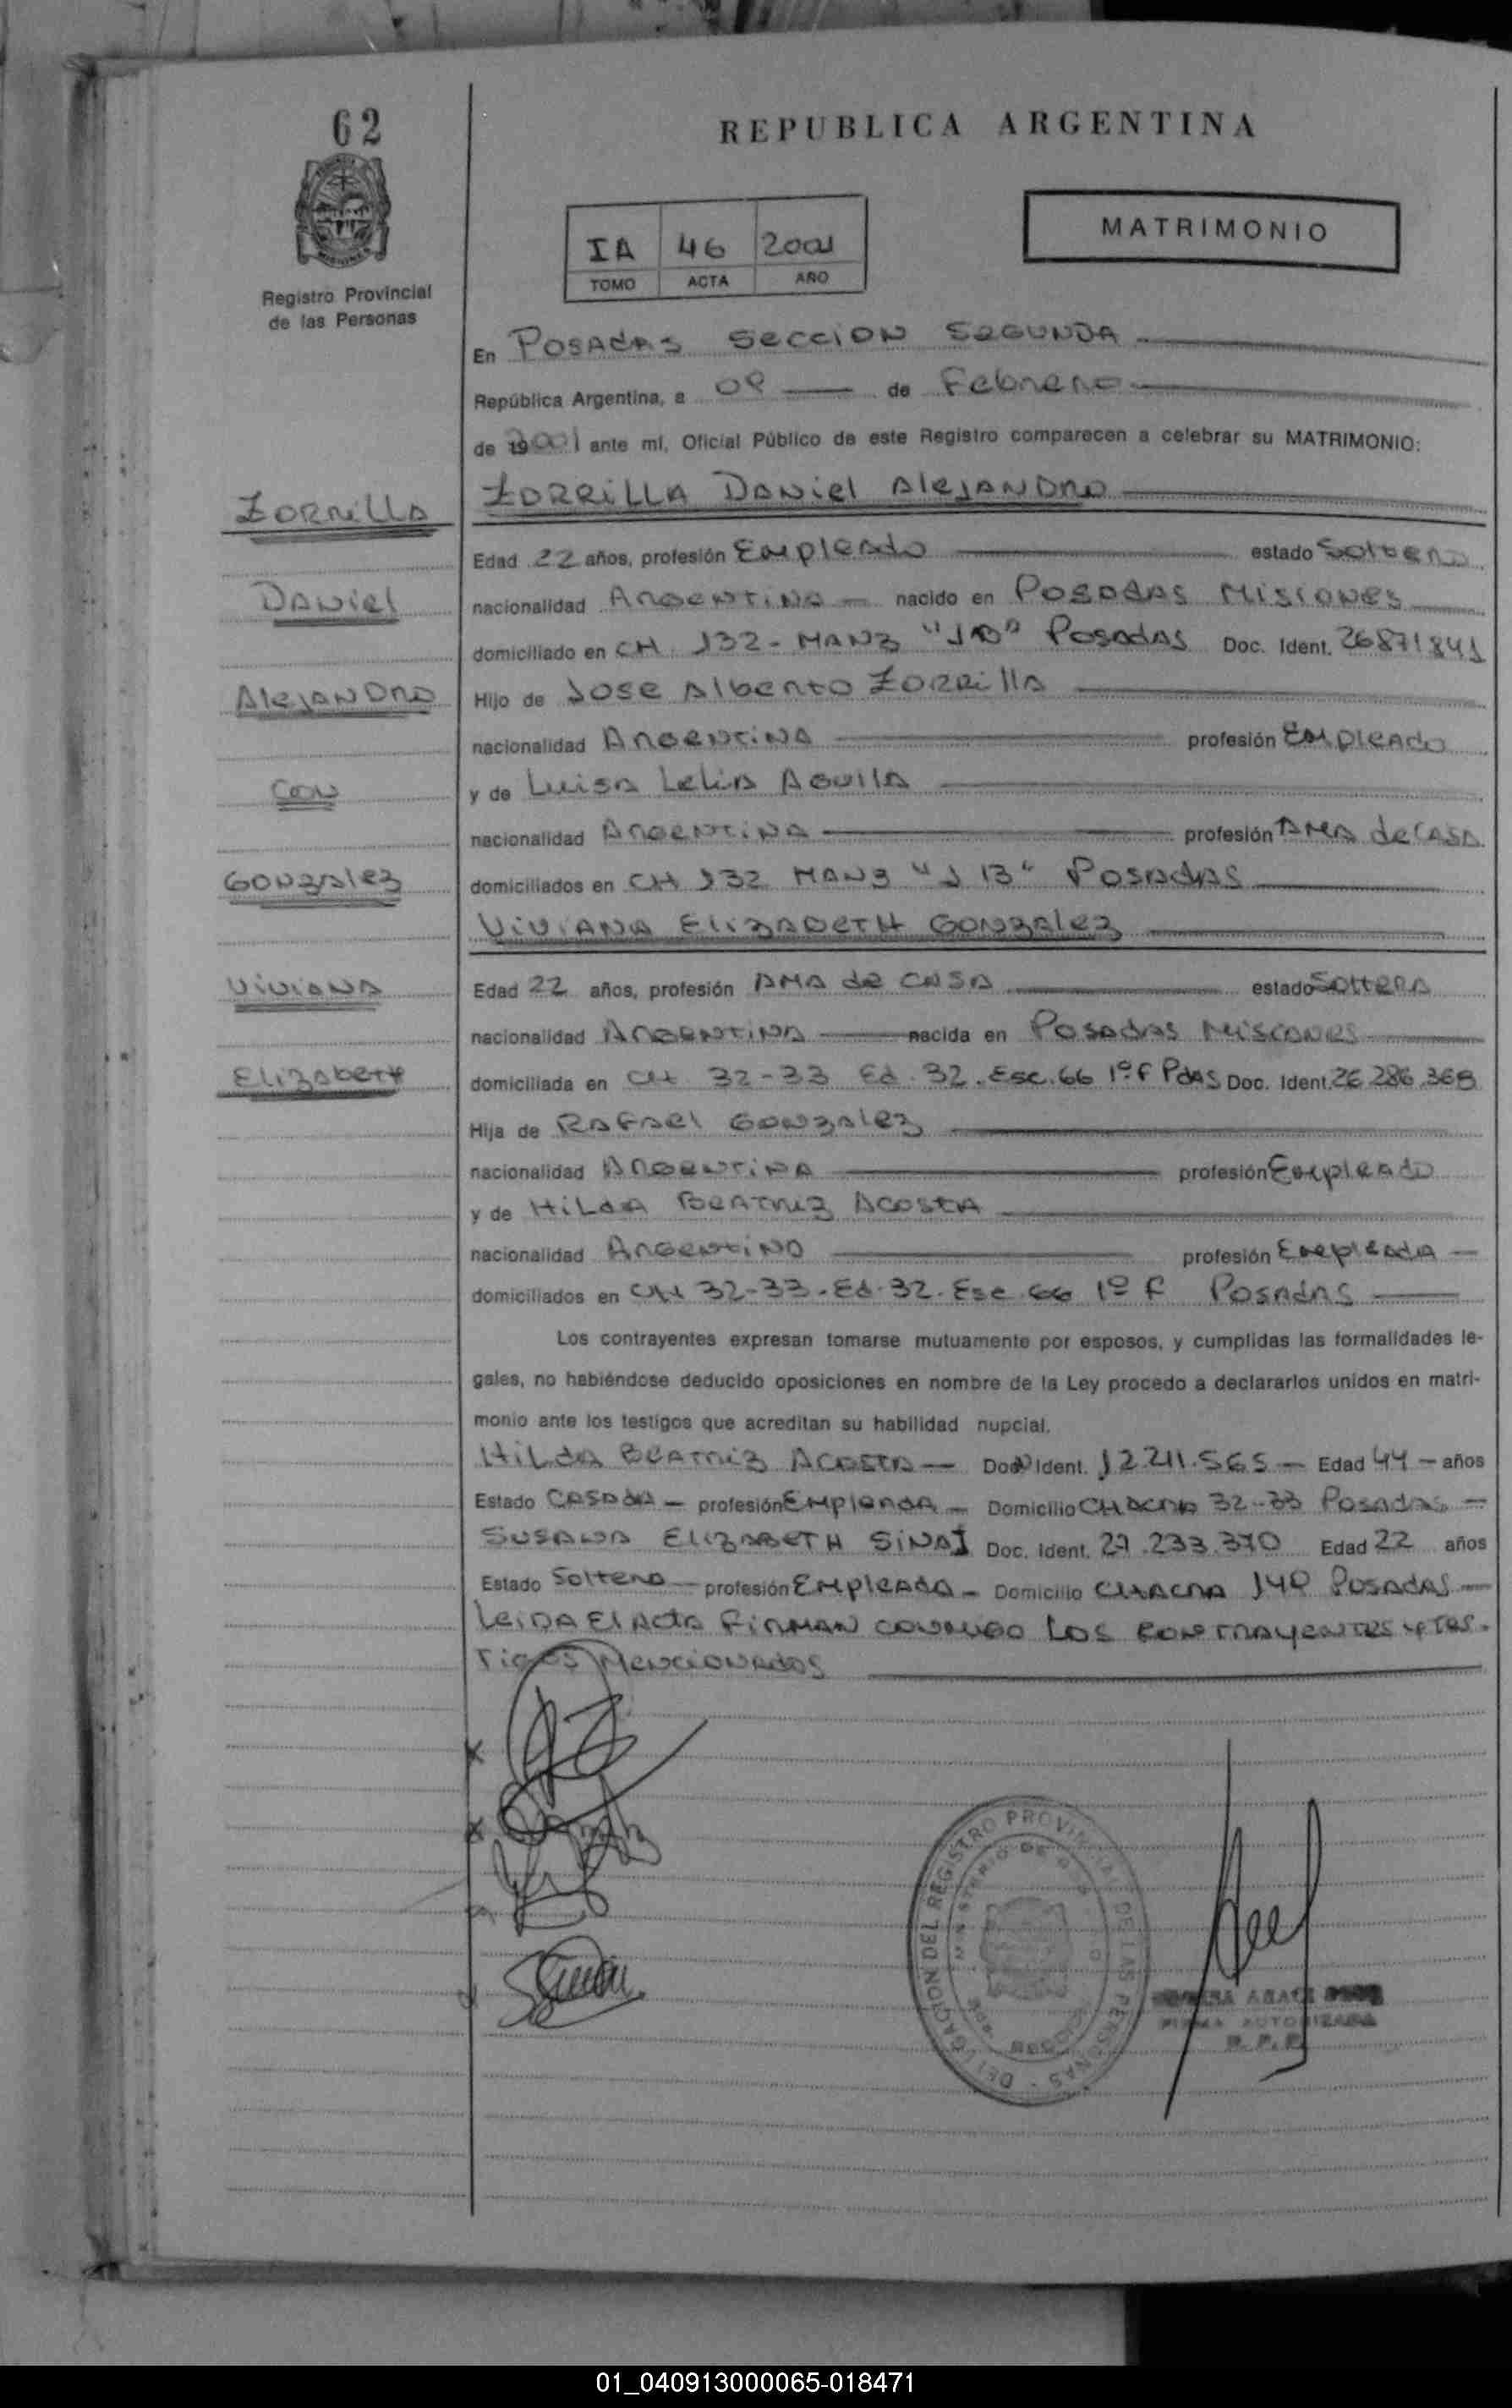 62
REPUBLICA ARGENTINA
IA 46 2001
TOMO ACTA AÑO
MATRIMONIO
Registro Provincial
de las Personas
En POSADAS SECCION SEGUNDA
República Argentina, a de Febrero
de 2001 ante mí, Oficial Público de este Registro comparecen a celebrar su MATRIMONIO:
ZORRILLA DANIEL ALEJANDRO
ZORRILLA
Edad 22 años, profesión Empleado estado Soltero
DANIEL
nacionalidad Argentina nacido en POSADAS MISIONES
domiciliado en CH 132 - MANZ Posadas Doc. Ident. 26871841
ALEJANDRO
Hijo de Jose Alberto Zorrilla
nacionalidad Argentina profesión Empleado
CON
y de Luisa Lelia Aguila
nacionalidad Argentina profesión AMA de CASA
GONZALEZ
domiciliados en CH 132 MANZ "J 13" Posadas
VIVIANA ELIZABETH GONZALEZ
VIVIANA
Edad 22 años, profesión AMA de CASA estado Soltera
nacionalidad ARGENTINA nacida en Posadas Misiones
ELIZABETH
domiciliada en CH 32-33 Ed. 32. Esc. 66 1º F Pdas Doc. Ident. 26.286.368
Hija de Rafael Gonzalez
nacionalidad Argentina profesión Empleado
y de HILDA BEATRIZ ACOSTA
nacionalidad Argentina profesión Empleada
domiciliados en CH 32-33. Ed. 32. Esc. 66 1º F Posadas
Los contrayentes expresan tomarse mutuamente por esposos, y cumplidas las formalidades le-
gales, no habiéndose deducido oposiciones en nombre de la Ley procedo a declararlos unidos en matri-
monio ante los testigos que acreditan su habilidad nupcial.
HILDA BEATRIZ ACOSTA Doc. Ident. 12.211.565 Edad 44 años
Estado CASADA profesión EMPLEADA Domicilio CHACRA 32-33 Posadas
SUSANA ELIZABETH Doc. Ident. 27.233.370 Edad 22 años
Estado Soltera profesión EMPLEADA Domicilio CHACRA Posadas
Leida El Acta FIRMAN CONMIGO LOS CONTRAYENTES y TES-
TIGOS MENCIONADOS
DELEGACION DEL REGISTRO PROVINCIAL DE LAS PERSONAS
FIRMA AUTORIZADA
01_040913000065-018471